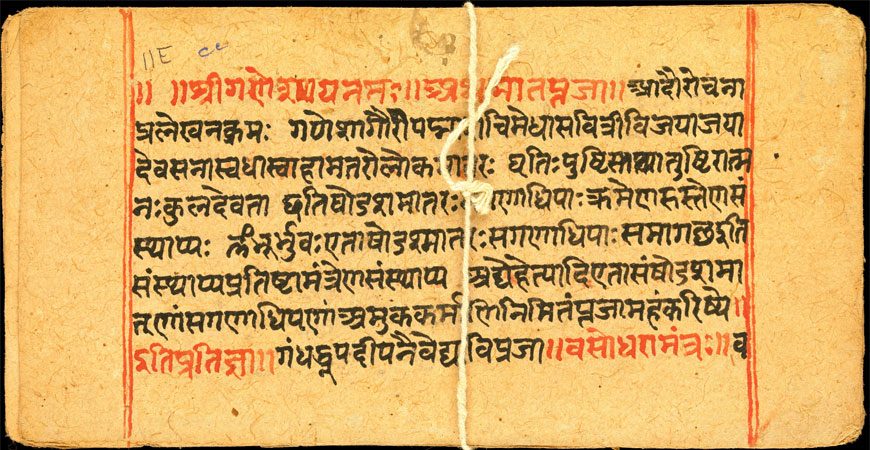 IIE cc
॥ ॥श्रीगणेशायनमः॥अथ मातपूजा॥आदौरोचना
प्रलेखनक्रमः गणेशगौरीपद्मा चिमेधासवित्रीविजयाजया
देवसनास्वधास्वाहामातरोलोकमातरः धृतिःपुष्टिस्तथातुष्टिरात्म
नःकुलदेवता घृतिषोडशमातरः गणाधिपाःक्रमेणहस्तेणसं
स्थाप्यः ॐभूर्भुवःएताषोडशमातरःसगणाधिपाःसमागछइति
संस्थाप्यप्रतिष्टामंत्रेणसंस्थाप्य अद्येहेत्यादिएतासंषोडशमा
तृणांसगणाधिपणां अमुककर्मणिनिमितंपूजामहंकरिष्ये॥
इतिप्रतिज्ञा॥गंधधूपदीपनैवेद्य विपूजा॥वसोधरामंत्रः॥व